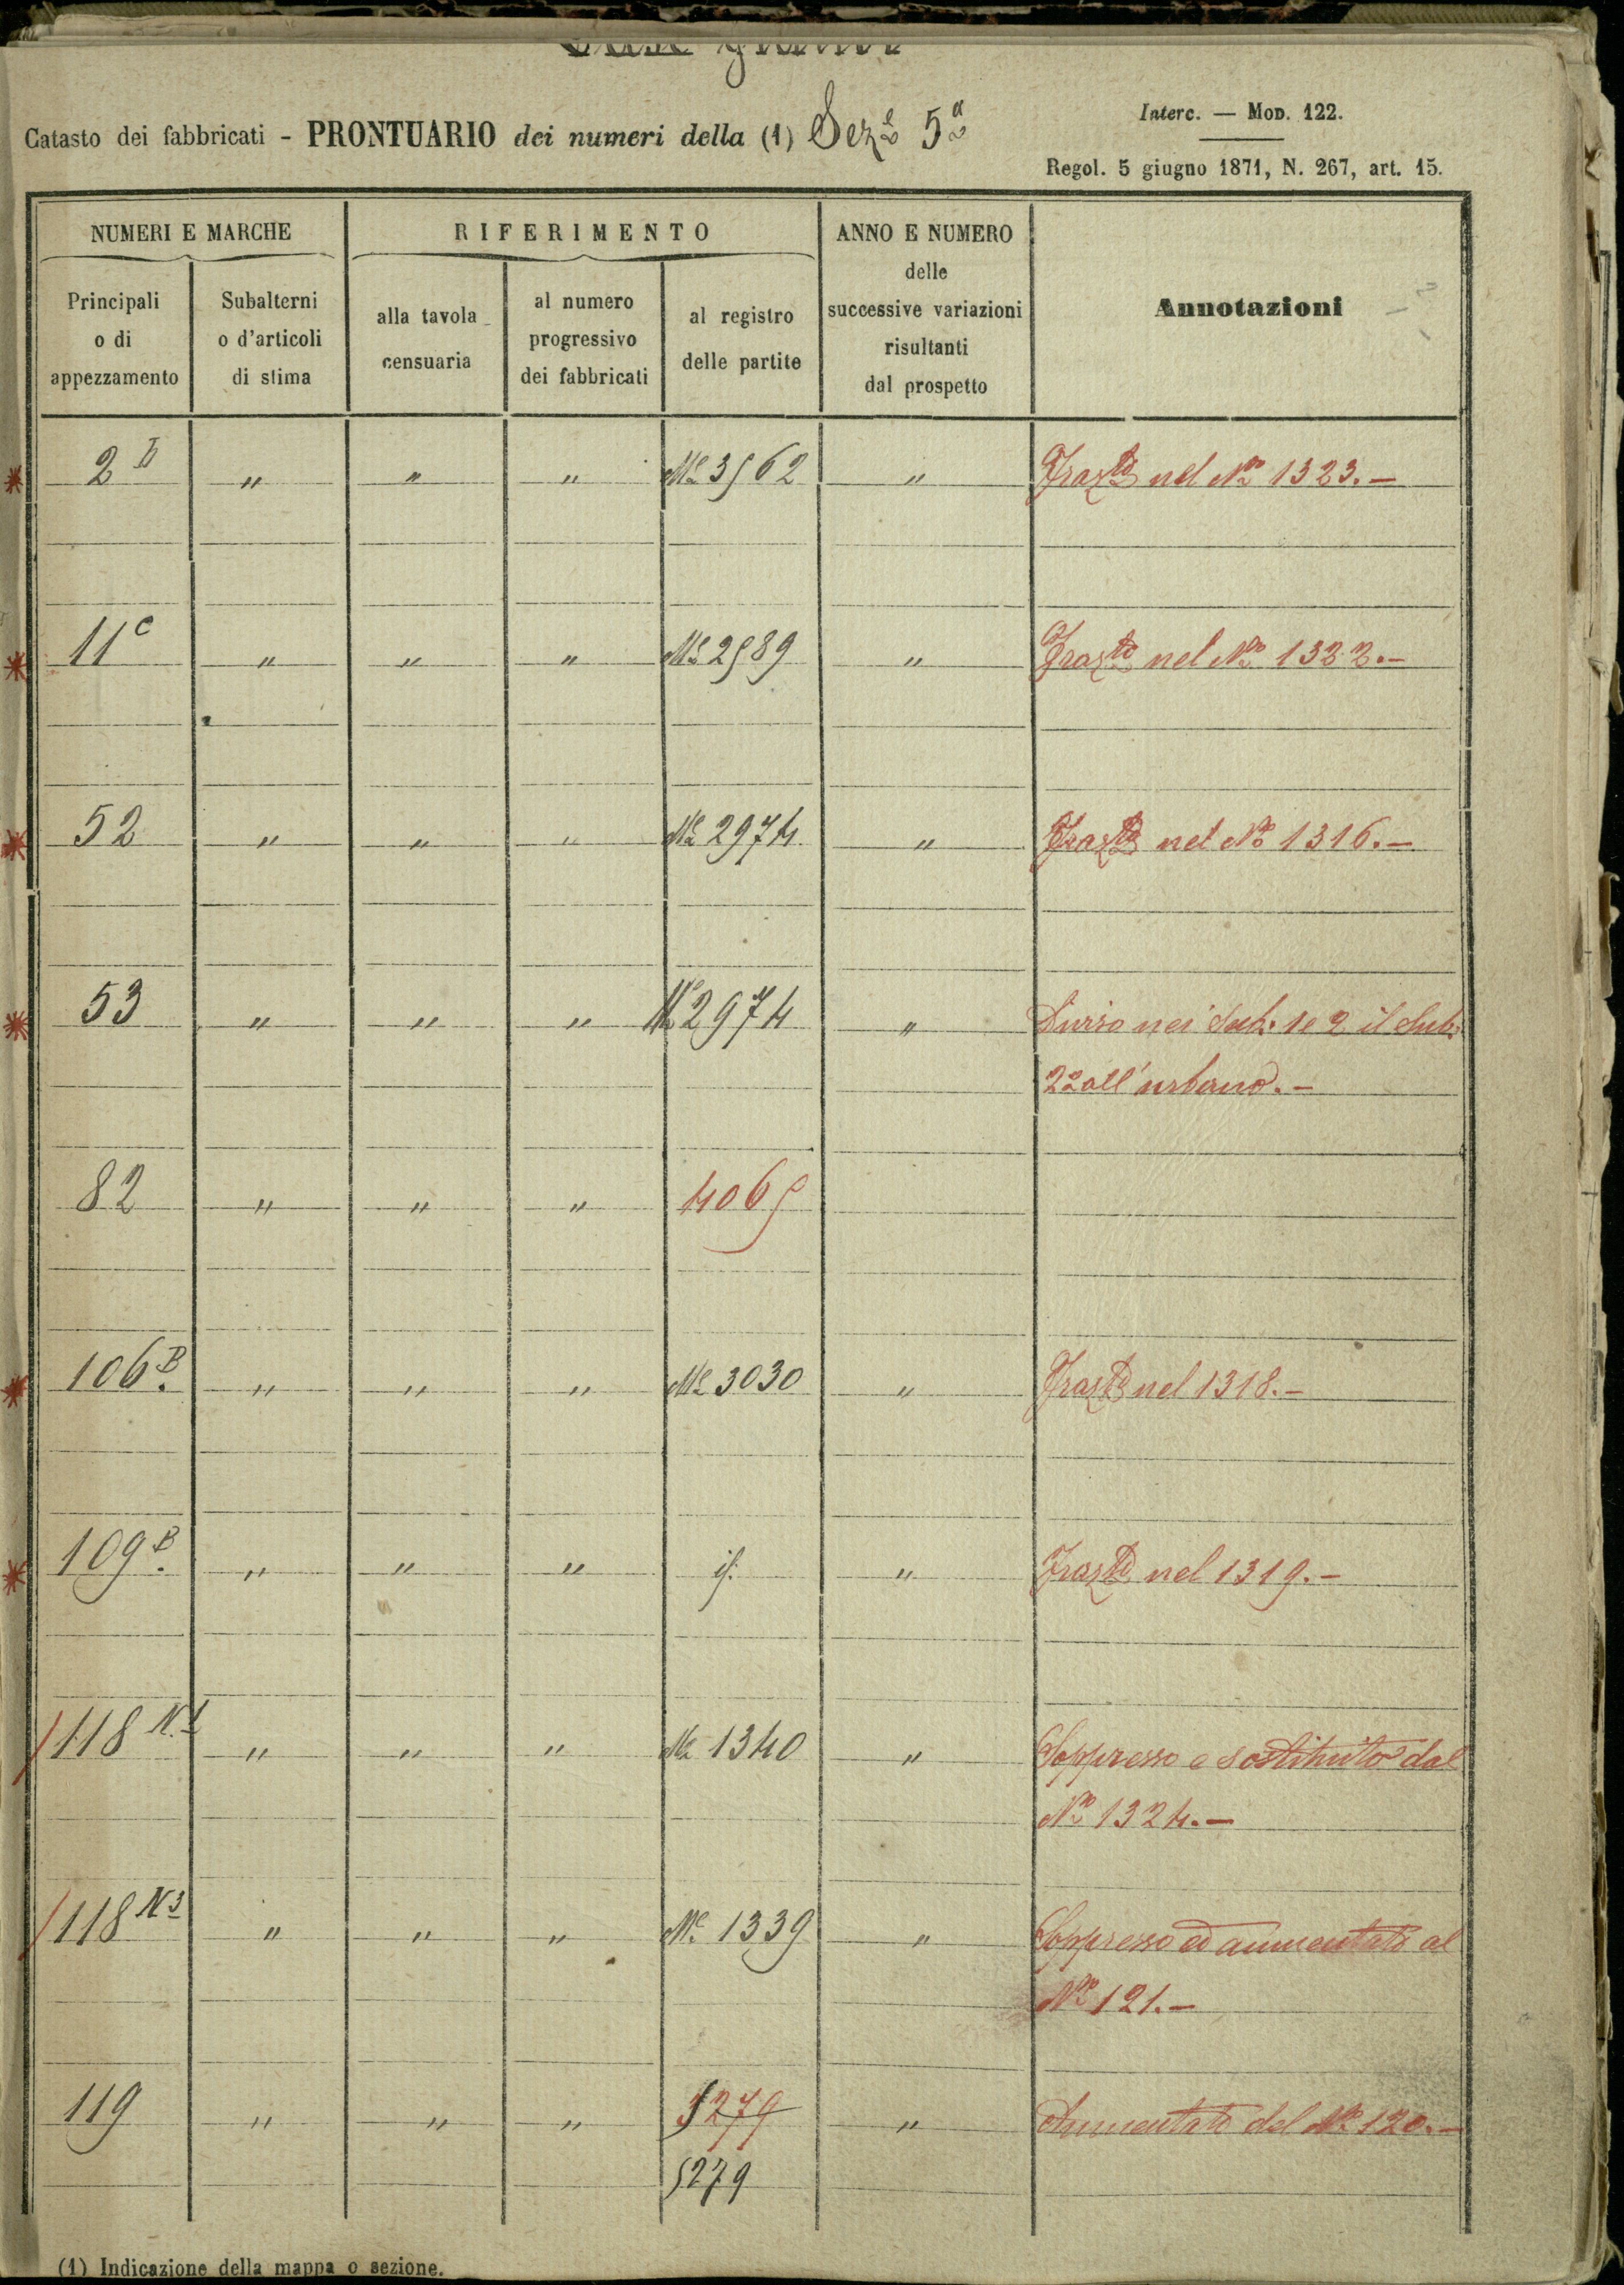 Interc. — Mod. 122.
Catasto dei fabbricati - PRONTUARIO dei numeri della (1) Sez.e 5a
Regol. 5 giugno 1871, N. 267, art. 15.
NUMERI E MARCHE
RIFERIMENTO
ANNO E NUMERO
delle
successive variazioni
risultanti
dal prospetto
Annotazioni
Principali
o di
appezzamento
Subalterni
o d'articoli
di stima
alla tavola
censuaria
al numero
progressivo
dei fabbricati
al registro
delle partite
2 b " " " Me 3562 " Frazto nel No 1323.—
11 c " " " Me 2589 " Frazto nel No 1322.—
52 " " " Me 2974 " Frazto nel No 1316.—
53 " " " Me 2974 " Diviso nei Sub. 1 e 2 il Sub.
2o all'urbano.—
82 " " " 4065
106 B. " " " Me 3030 " Frazto nel 1318.—
109 B. " " " " Frazto nel 1319.—
118 N.1 " " " Me 1340 " Soppresso e sostituito dal
No 1324.—
118 N3 " " " Me 1339 " Soppresso ed aumentato al
No 121.—
119 " " " 5279 " Aumentato del No 120.—
5279
(1) Indicazione della mappa o sezione.